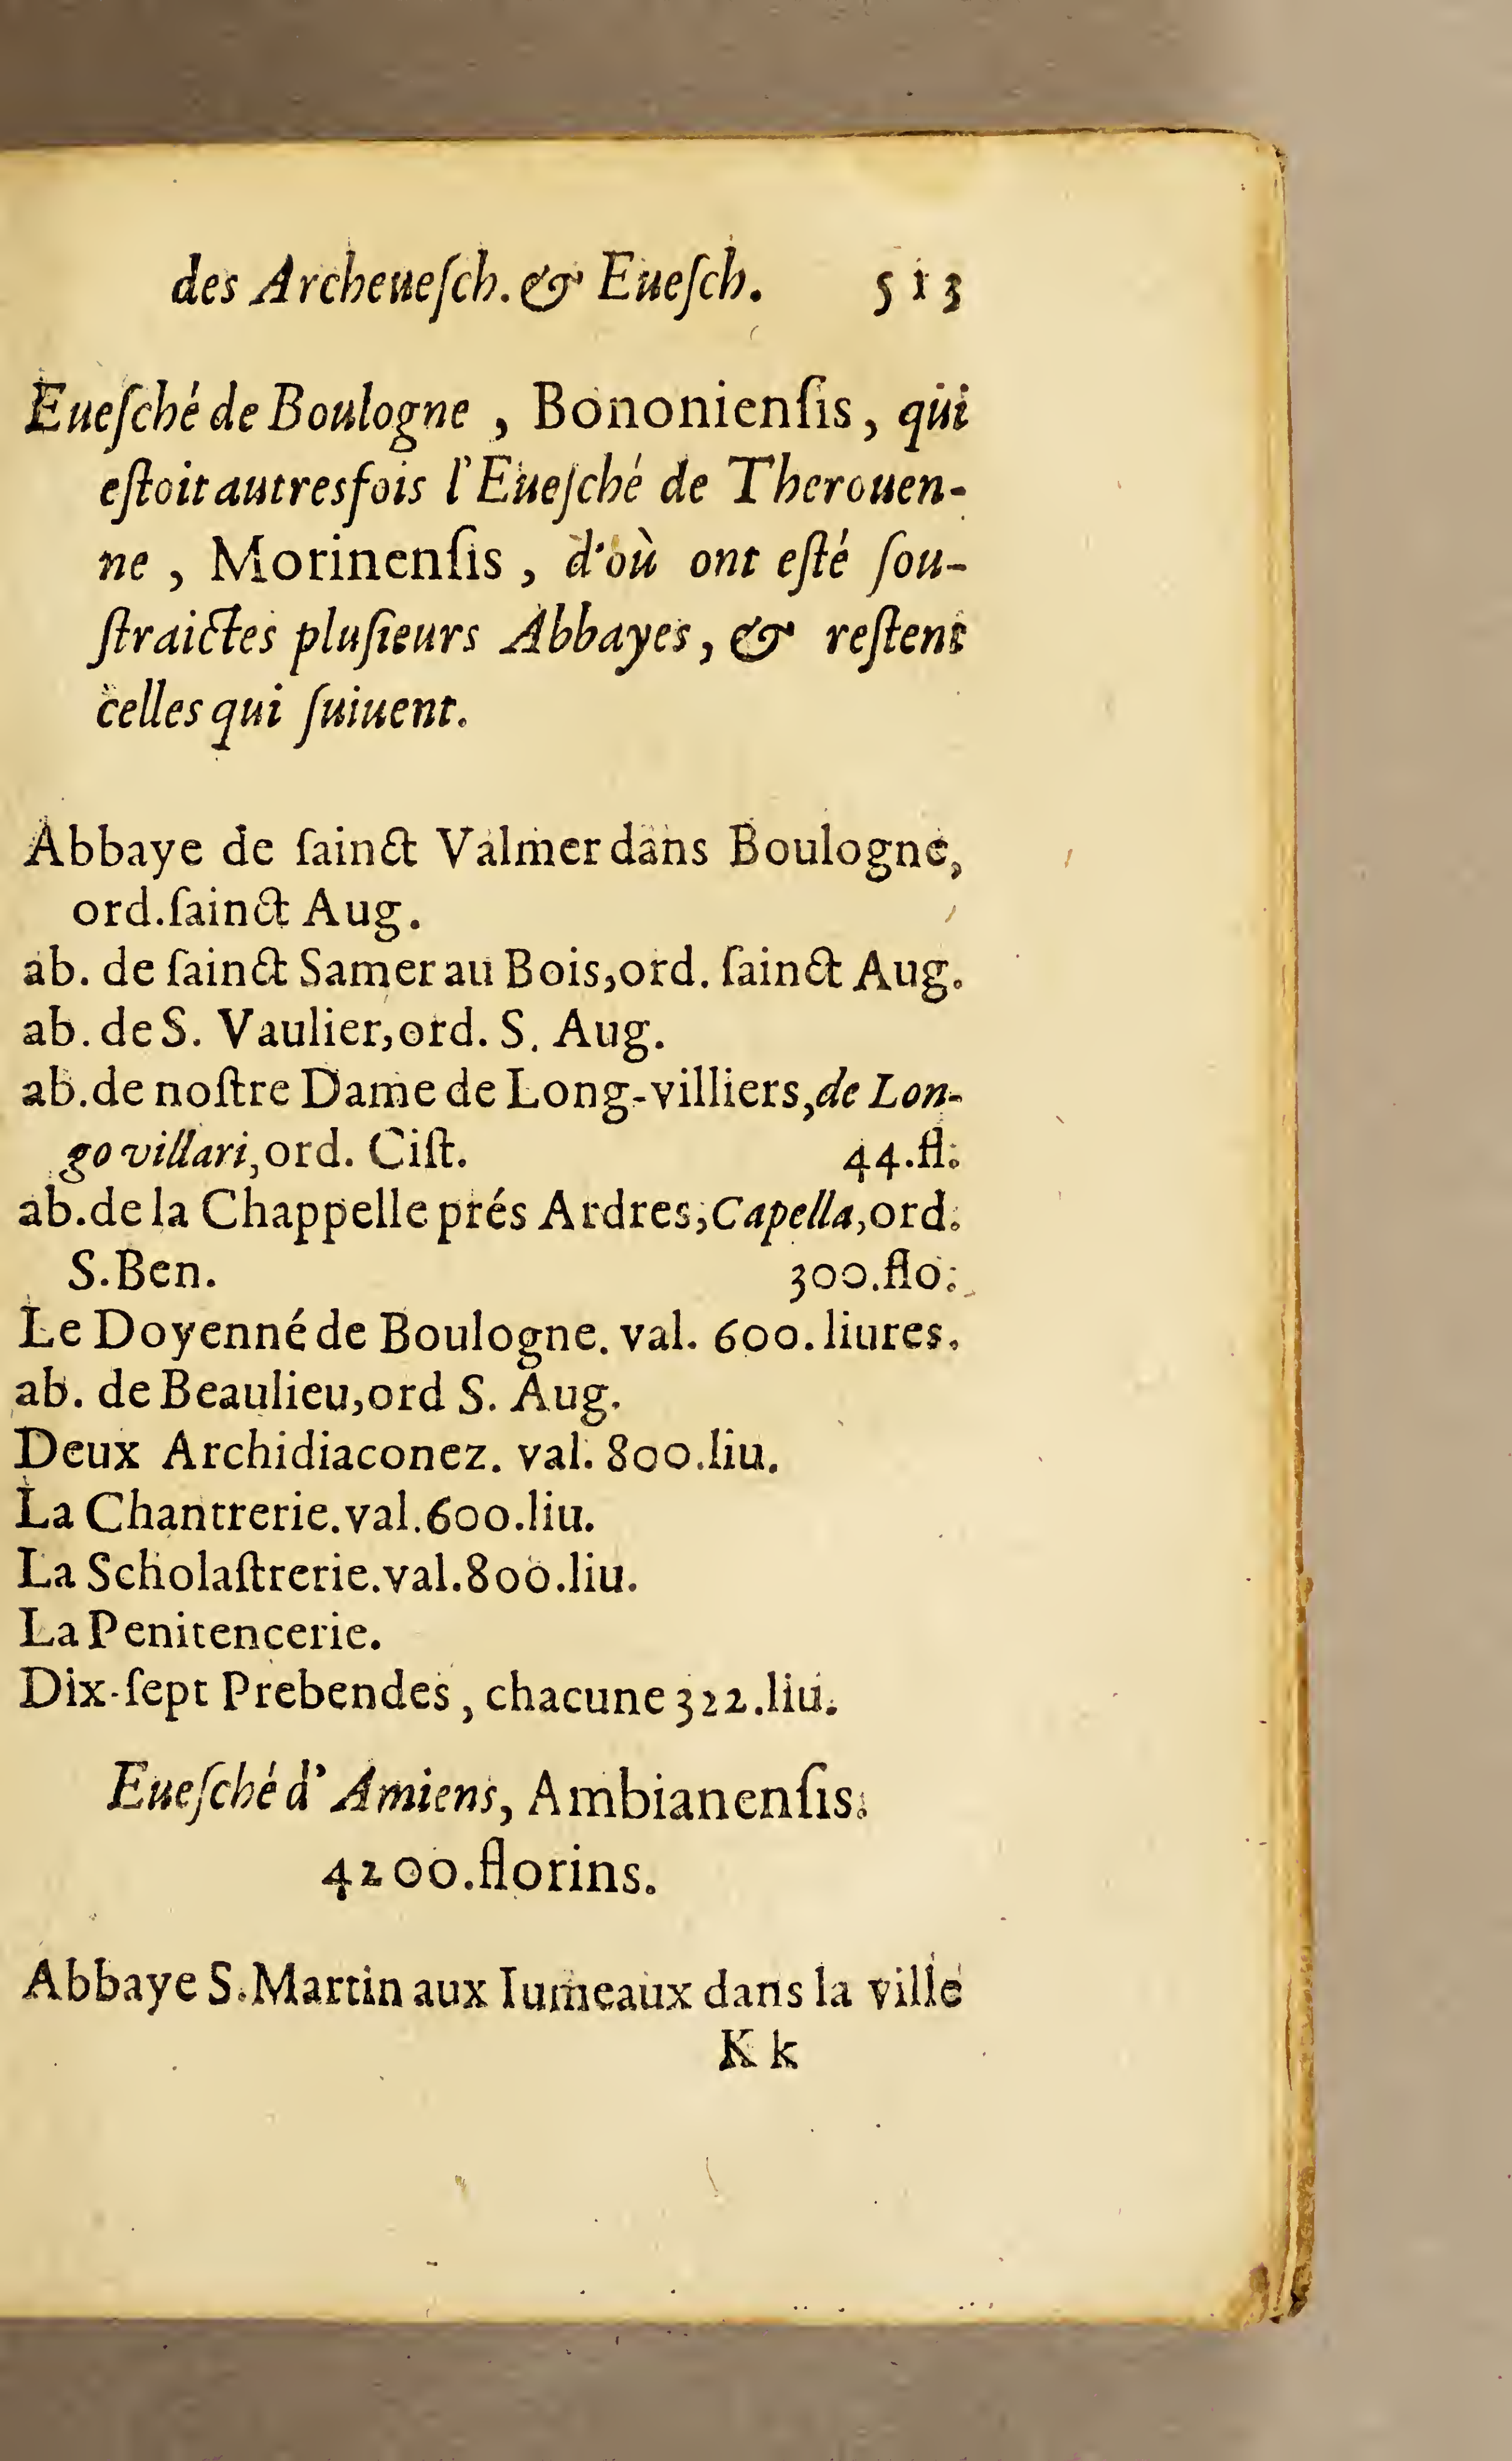 des Archeueſch. & Eueſch. 513
Eueſché de Boulogne , Bononienſis, qui
eſtoit autresfois l'Eueſché de Therouen-
ne , Morinenſis , d'où ont eſté ſou-
ſtraictes pluſieurs Abbayes, & reſtent
celles qui ſuiuent.
Abbaye de ſainct Valmer dans Boulogne,
ord.ſainct Aug.
ab. de ſainct Samer au Bois,ord. ſainct Aug.
ab. de S. Vaulier,ord. S. Aug.
ab.de noſtre Dame de Long-villiers,de Lon-
go villari,ord. Ciſt. 44.fl.
ab.de la Chappelle prés Ardres,Capella,ord.
S.Ben. 300.flo.
Le Doyenné de Boulogne. val. 600.liures.
ab. de Beaulieu,ord S. Aug.
Deux Archidiaconez. val. 800.liu.
La Chantrerie.val.600.liu.
La Scholaſtrerie.val.800.liu.
La Penitencerie.
Dix-ſept Prebendes , chacune 322.liu.
Eueſché d'Amiens, Ambianenſis.
4200.florins.
Abbaye S.Martin aux Iumeaux dans la ville
K k